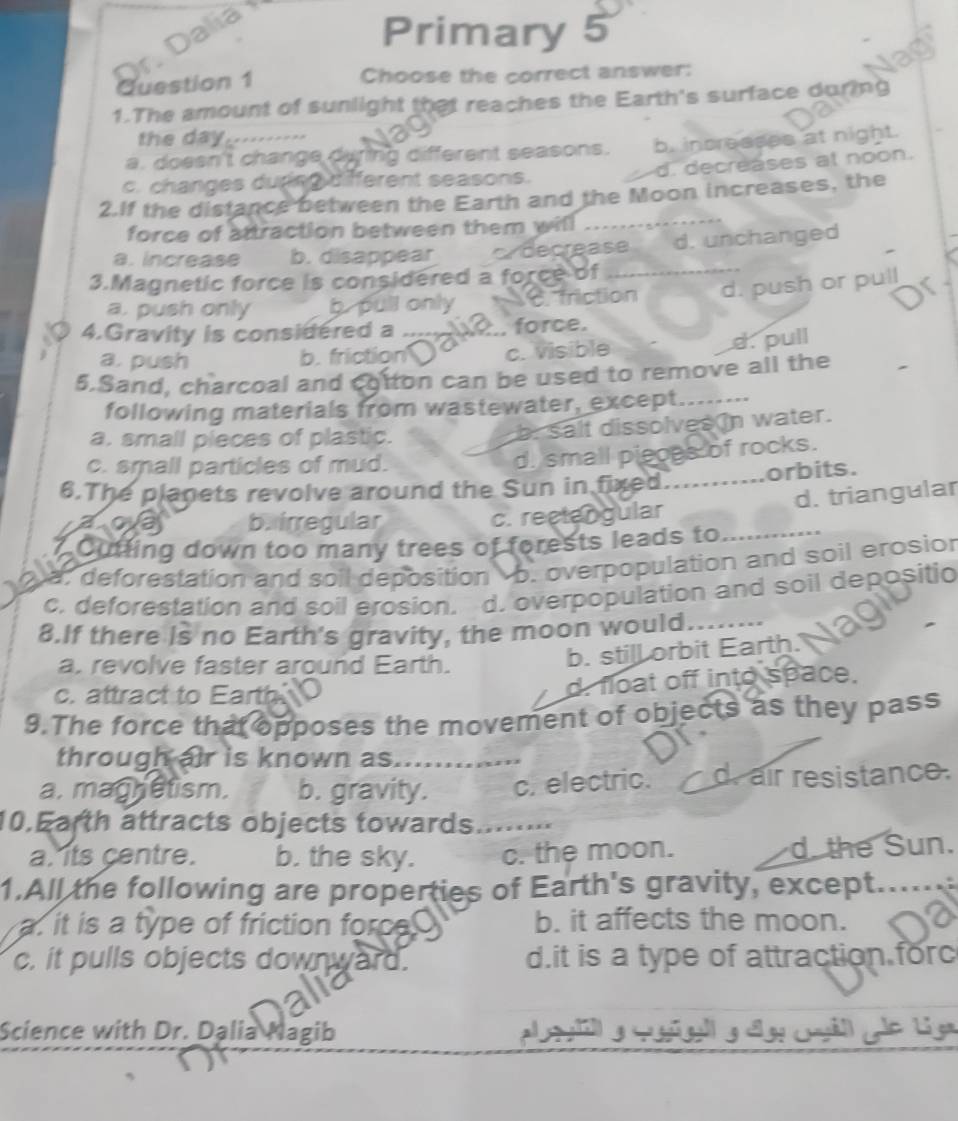 Primary 5
Question 1 Choose the correct answer:
1.The amount of sunlight that reaches the Earth's surface during
the day..........
a. doesn't change during different seasons. b. increases at night.
c. changes during different seasons. d. decreases at noon.
2.If the distance between the Earth and the Moon increases, the
force of attraction between them will ................
a. increase b. disappear c. decrease d. unchanged
3.Magnetic force is considered a force of ................
a. push only b. pull only c. friction d. push or pull
4.Gravity is considered a ............ force.
a. push b. friction c. visible d. pull
5.Sand, charcoal and cotton can be used to remove all the
following materials from wastewater, except........
a. small pieces of plastic. b. salt dissolves in water.
c. small particles of mud. d. small pieces of rocks.
6.The planets revolve around the Sun in fixed............orbits.
a. oval b. irregular c. rectangular d. triangular
Cutting down too many trees of forests leads to............
a. deforestation and soil deposition b. overpopulation and soil erosion
c. deforestation and soil erosion. d. overpopulation and soil depositio
8.If there is no Earth's gravity, the moon would........
a. revolve faster around Earth. b. still orbit Earth.
c. attract to Earth d. float off into space.
9.The force that opposes the movement of objects as they pass
through air is known as.............
a. magnetism. b. gravity. c. electric. d. air resistance.
10.Earth attracts objects towards........
a. its centre. b. the sky. c. the moon. d. the Sun.
1.All the following are properties of Earth's gravity, except.......
a. it is a type of friction force b. it affects the moon.
c. it pulls objects downward. d.it is a type of attraction.forc
Science with Dr. Dalia Nagib هتلاقينا على الفيس بوك و اليوتيوب و التليجرام
Dr. Dalia Nagib